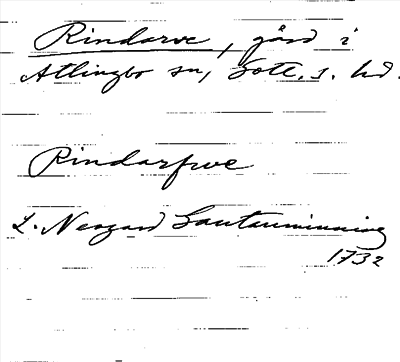 Rindarve, gård i
Atlingbo sn, Gotl. s. hd.
Rindarfwe
L. Neogard Gautauminning
1732